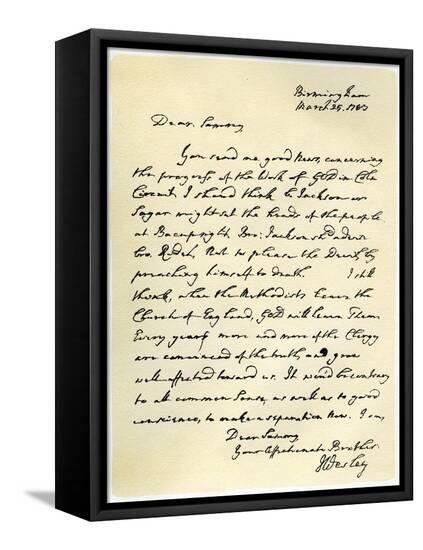 Birmingham
March 25, 1783
Dear Sammy,
You send me good News, concerning
the progress of the Work of GOD in Coln
Circuit. I should think Br Jackson or
Sagar might set the heads of the people
at Bacup right. Bro: Jackson shd advise
bro. Ridel, Not to please the Devil, by
preaching himself to death. I still
think, when the Methodists leave the
Church of England, GOD will leave Them.
Every year more and more of the Clergy
are convinced of the truth, and grow
well-affected toward us. It wou'd be contrary
to all common Sense, as well as to good
conscience, to make a separation Now. I am,
Dear Sammy
Your affectionate Brother
JWesley